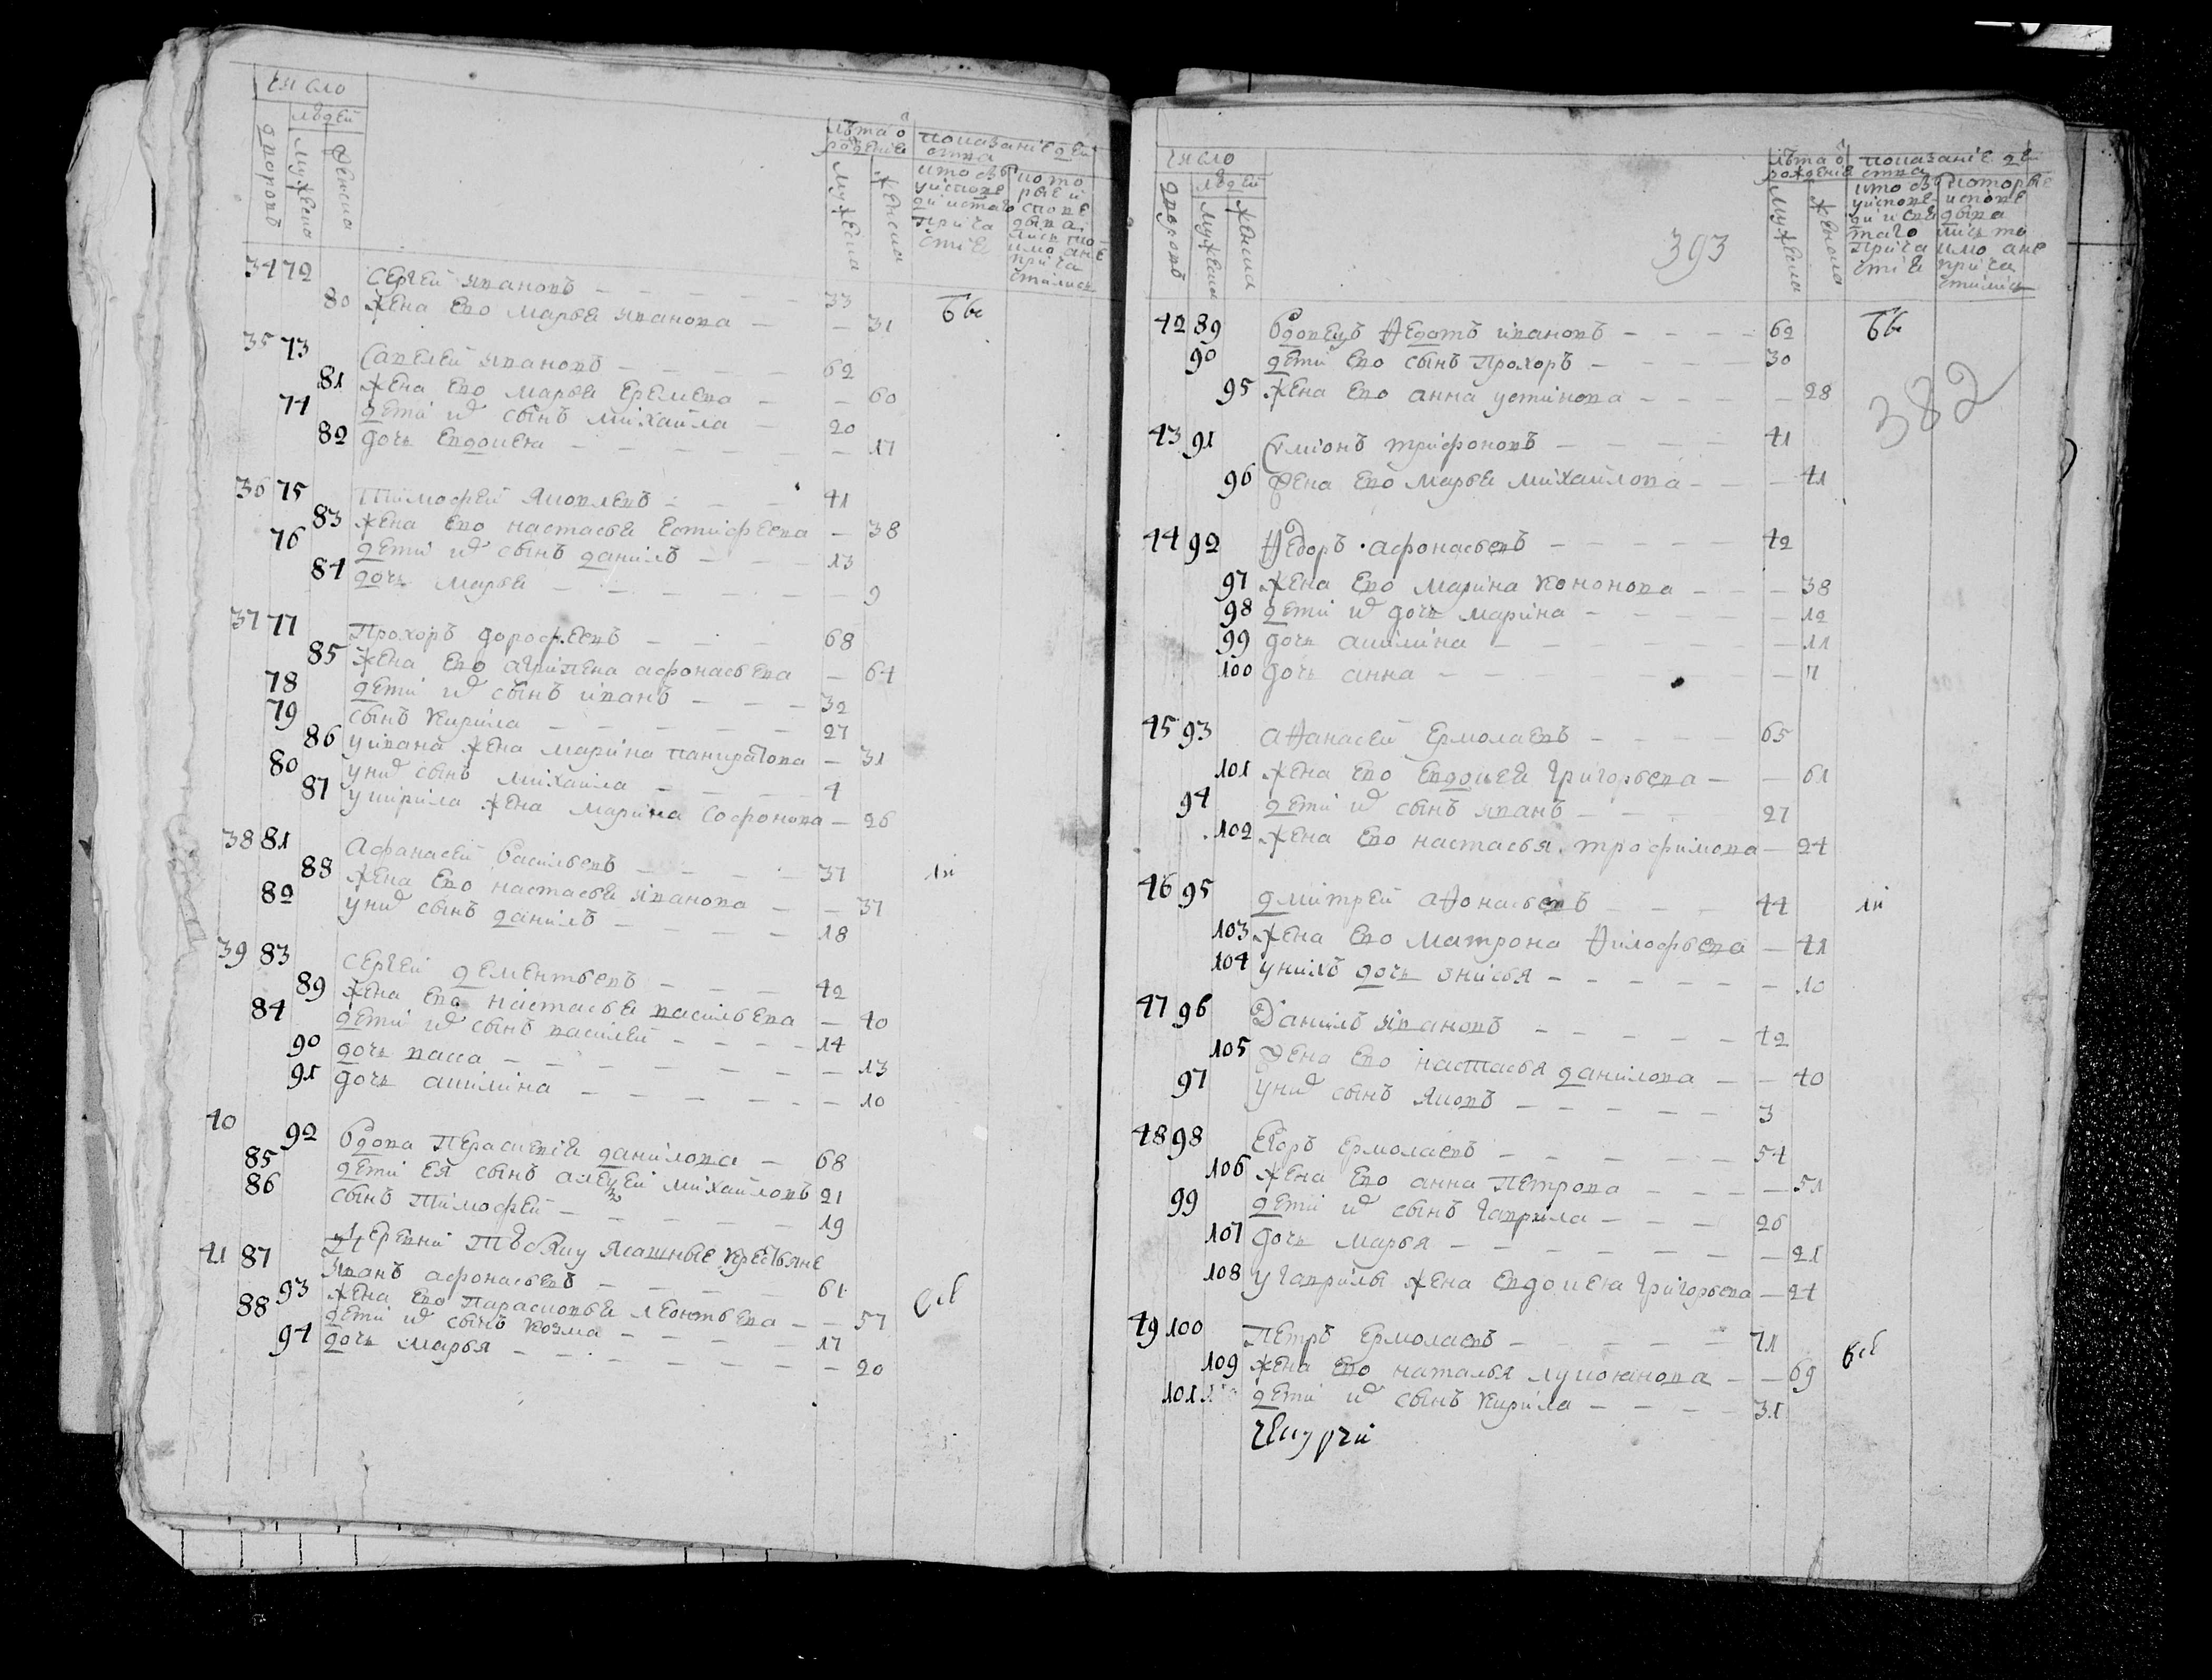 число
людей
дворовъ
мужеска
женска
лѣта ѿ рожденiя
мужеска
женска
показанiе действа
кто бы
у исповеди и стаго причастiе
которые исповедывались токмо а не причастились
34 72 Сергей Ивановъ — 33 бы
80 жена ево марья Иванова — 31
35 73 Савелей Ивановъ — 62
81 жена ево марья Еремеева — 60
74 дети их сынъ михайла — 20
82 дочь Евдокея — 17
36 75 Тимофей Яковлевъ — 41
83 жена ево настасья Естифеева — 38
76 дети их сынъ данилъ — 13
84 дочь марья — 9
37 77 Прохоръ дорофеевъ — 68
85 жена ево агрипена афонасьева — 64
78 дети их сынъ иванъ — 32
79 сынъ кирила — 27
86 у ивана жена марина панкратова — 31
80 у них сынъ михайла — 4
87 у кирила жена марина Софонова — 26
38 81 Афанасей Васильевъ — 37 ли
88 жена ево настасья Иванова — 37
82 у них сынъ данилъ — 18
39 83 Сергей дементьевъ — 42
89 жена ево настасья васильева — 40
84 дети их сынъ василей — 14
90 дочь васса — 13
91 дочь акилина — 10
40 92 Вдова Перасковiя данилова — 68
85 дети ея сынъ алексей михайловъ 21
86 сынъ Тимофей — 19
деревни ясашные крестьяне
41 87 Иванъ афонасьевъ — 61 всѣ
93 жена ево Парасковья леонтьева — 57
88 дети их сынъ козма — 17
94 дочь марья — 20
393
число
людей
дворовъ
мужеска
женска
лѣта ѿ рожденiе
мужеска
женска
показанiе действа
кто бы
у исповеди и стаго причастiя
которые исповедывались токмо а не причастились
42 89 Вдовецъ Ѳедотъ ивановъ — 62 бы
90 дети ево сынъ Прохоръ — 30
382
95 жена ево анна устинова — 28
43 91 Симiонъ трифоновъ — 41
96 жена ево марья михайлова — 41
44 92 Ѳедоръ афонасьевъ — 42
97 жена ево марина кононова — 38
98 дети их дочь марина — 12
99 дочь акилина — 11
100 дочь анна — 7
45 93 аѲанасей Ермолаевъ — 65
101 жена ево Евдокея григорьева — 61
94 дети их сынъ Иванъ — 27
102 жена ево настасья трофимова — 24
46 95 дмитрей аѲонасьевъ — 44 ли
103 жена ево матрона Ѳилофьева — 41
104 у нихъ дочь — 10
47 96 Данилъ Ивановъ — 42
105 жена ево настасья данилова — 40
97 у них сынъ Яковъ — 3
48 98 Егоръ Ермолаевъ — 54
106 жена ево анна Петрова — 51
99 дети их сынъ гаврила — 26
107 дочь марья — 21
108 у гаврилы жена Евдокея григорьева — 24
49 100 Петръ Ермолаевъ — 71 всѣ
109 жена ево наталья лукоянова — 69
101 дети их сынъ кирила — 31